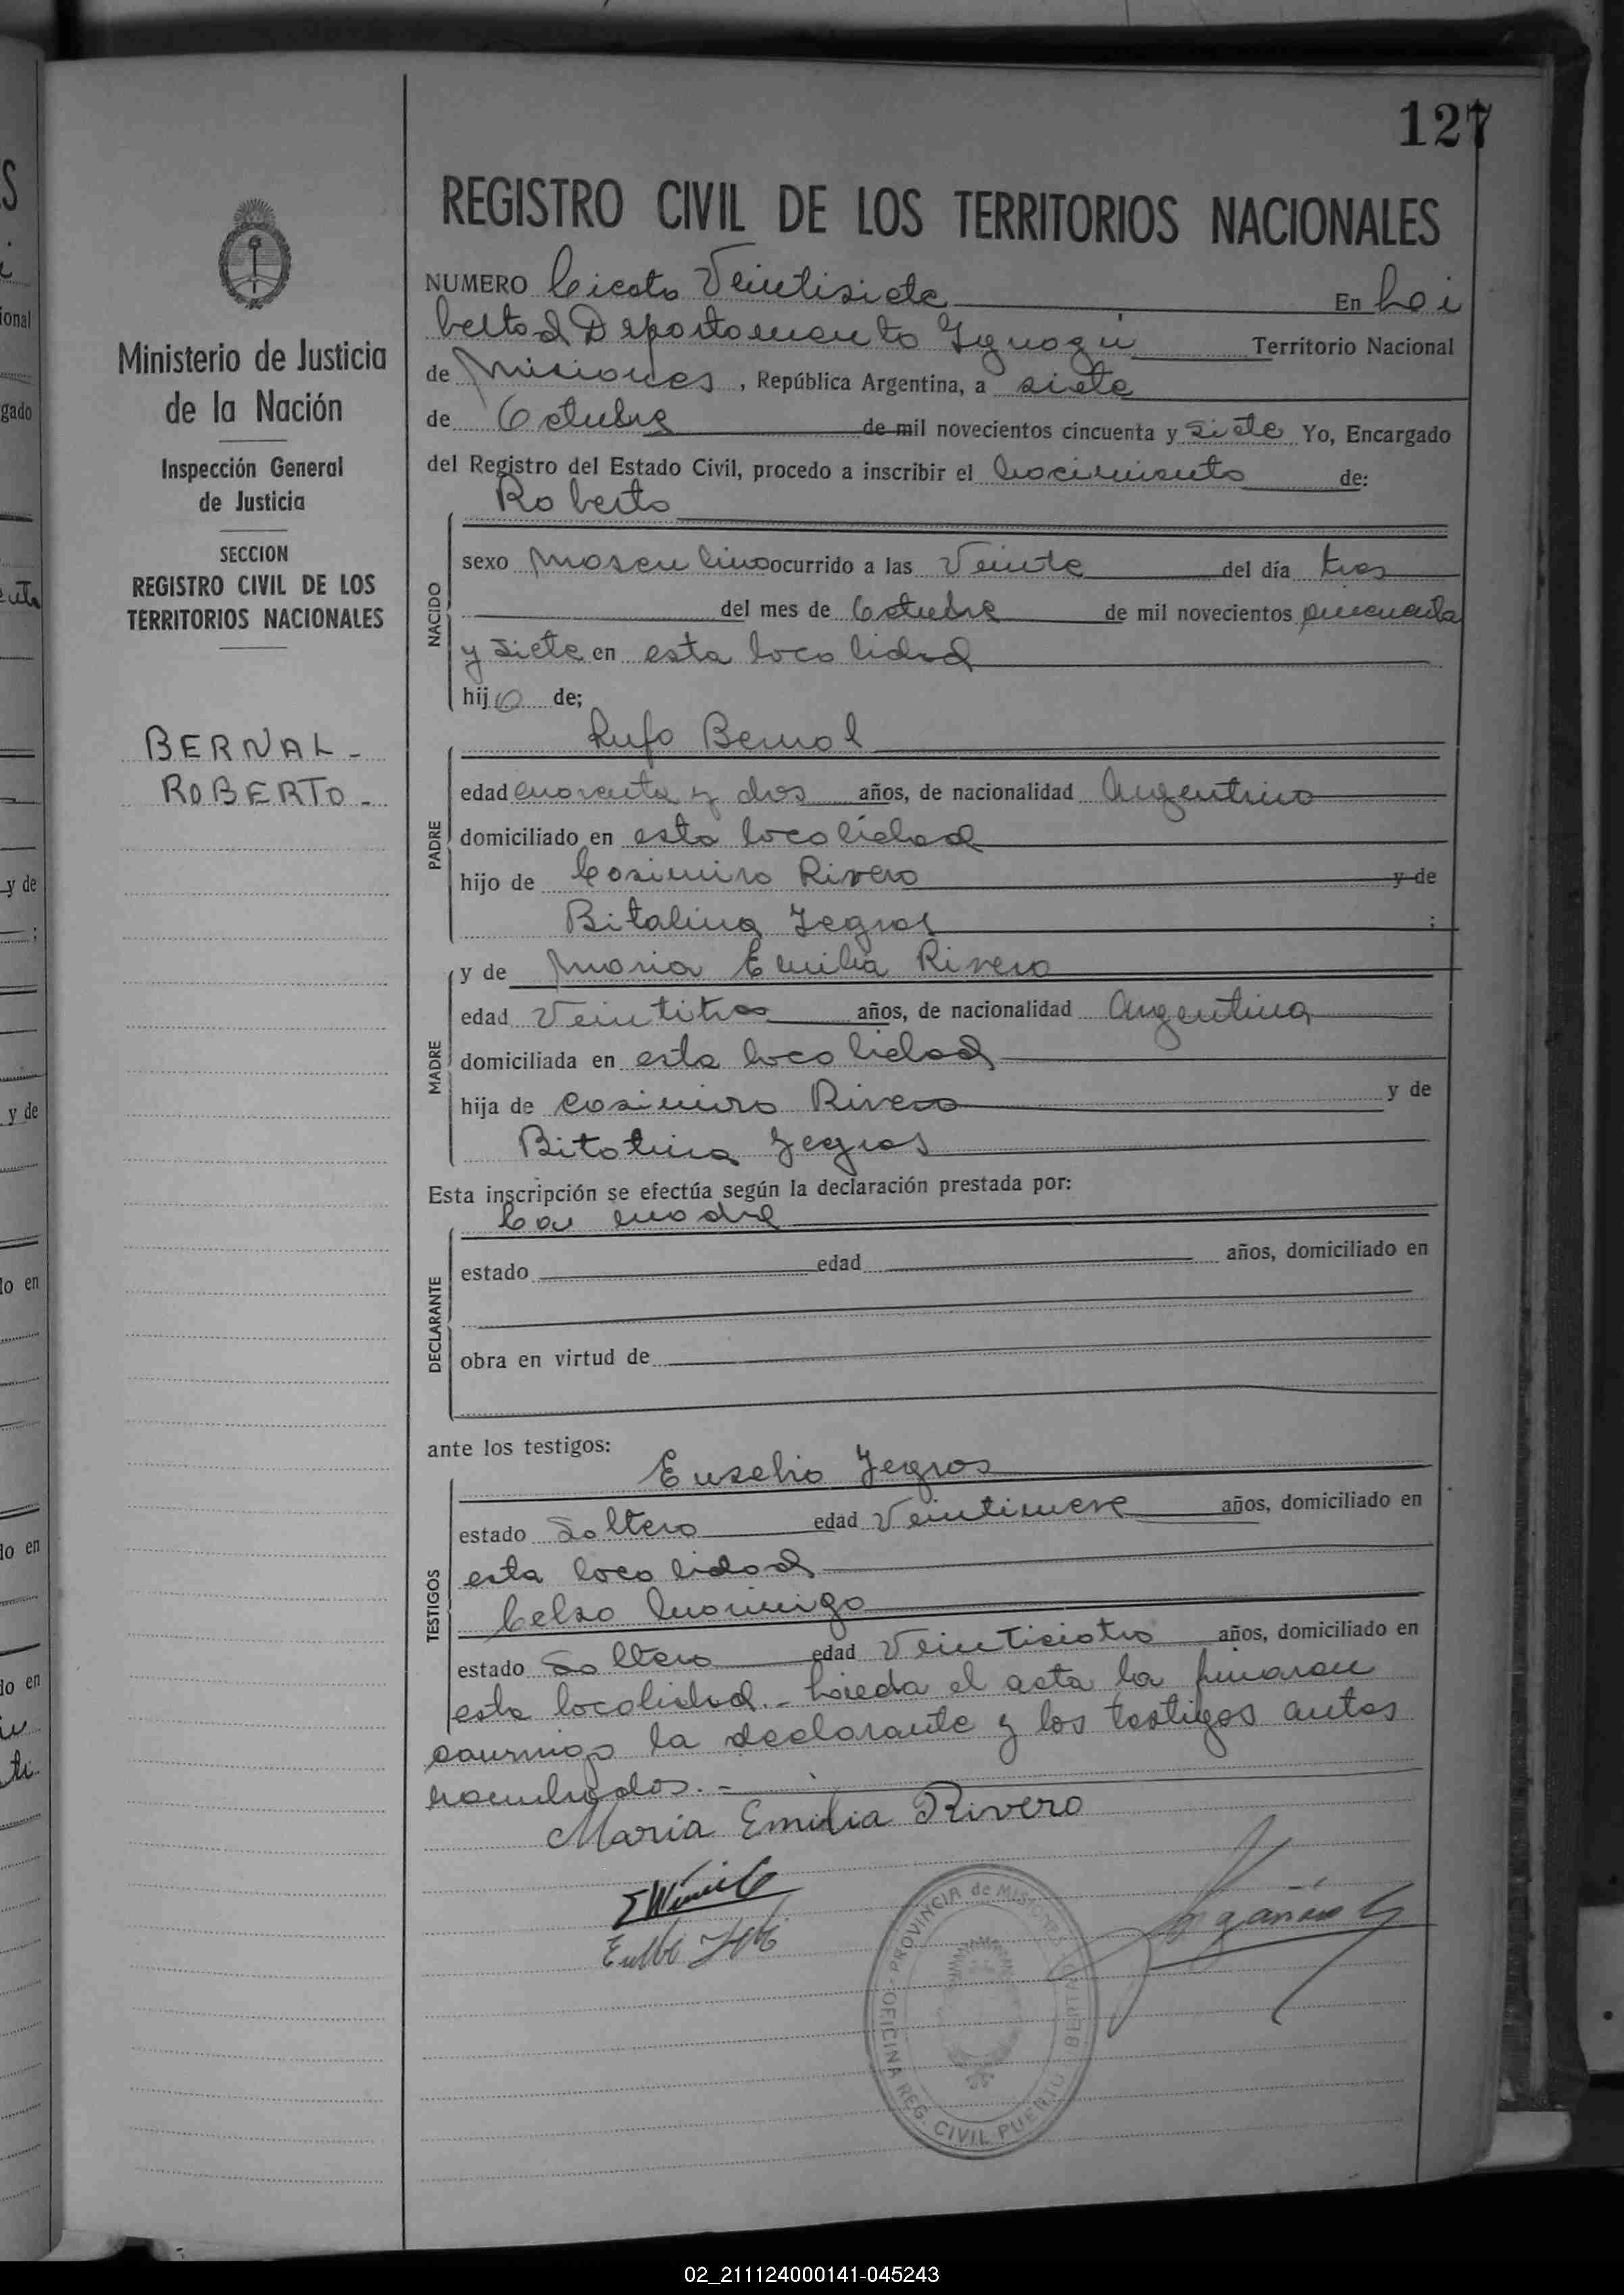 127
REGISTRO CIVIL DE LOS TERRITORIOS NACIONALES
NUMERO Ciento Veintisiete En Li
bertad Departamento Iguazú Territorio Nacional
de Misiones, República Argentina, a siete
de Octubre de mil novecientos cincuenta y siete Yo, Encargado
del Registro del Estado Civil, procedo a inscribir el nacimiento de:
Roberto
NACIDO
sexo masculino ocurrido a las Veinte del día tres
del mes de Octubre de mil novecientos cincuenta
y siete en esta localidad
hijo de;
Rufo Bernal
PADRE
edad cuarenta y dos años, de nacionalidad Argentino
domiciliado en esta localidad
hijo de Casimiro Rivero y de
Bitalina Yegros ;
y de Maria Emilia Rivero
MADRE
edad Veintitres años, de nacionalidad Argentina
domiciliada en esta localidad
hija de Casimiro Rivero y de
Bitalina Yegros
Esta inscripción se efectúa según la declaración prestada por:
La madre
DECLARANTE
estado edad años, domiciliado en
obra en virtud de
ante los testigos:
Eusebio Yegros
TESTIGOS
estado Soltero edad Veintinueve años, domiciliado en
esta localidad
Celso
estado Soltero edad años, domiciliado en
esta localidad.- Leida el acta la firmaron
conmigo la declarante y los testigos antes
nombrados.-
Maria Emilia Rivero
OFICINA REG. CIVIL PUERTO LIBERTAD - PROVINCIA de MISIONES
Ministerio de Justicia
de la Nación
Inspección General
de Justicia
SECCION
REGISTRO CIVIL DE LOS
TERRITORIOS NACIONALES
BERNAL-
ROBERTO-
ional
gado
y de
y de
lo en
lo en
lo en
02_211124000141-045243